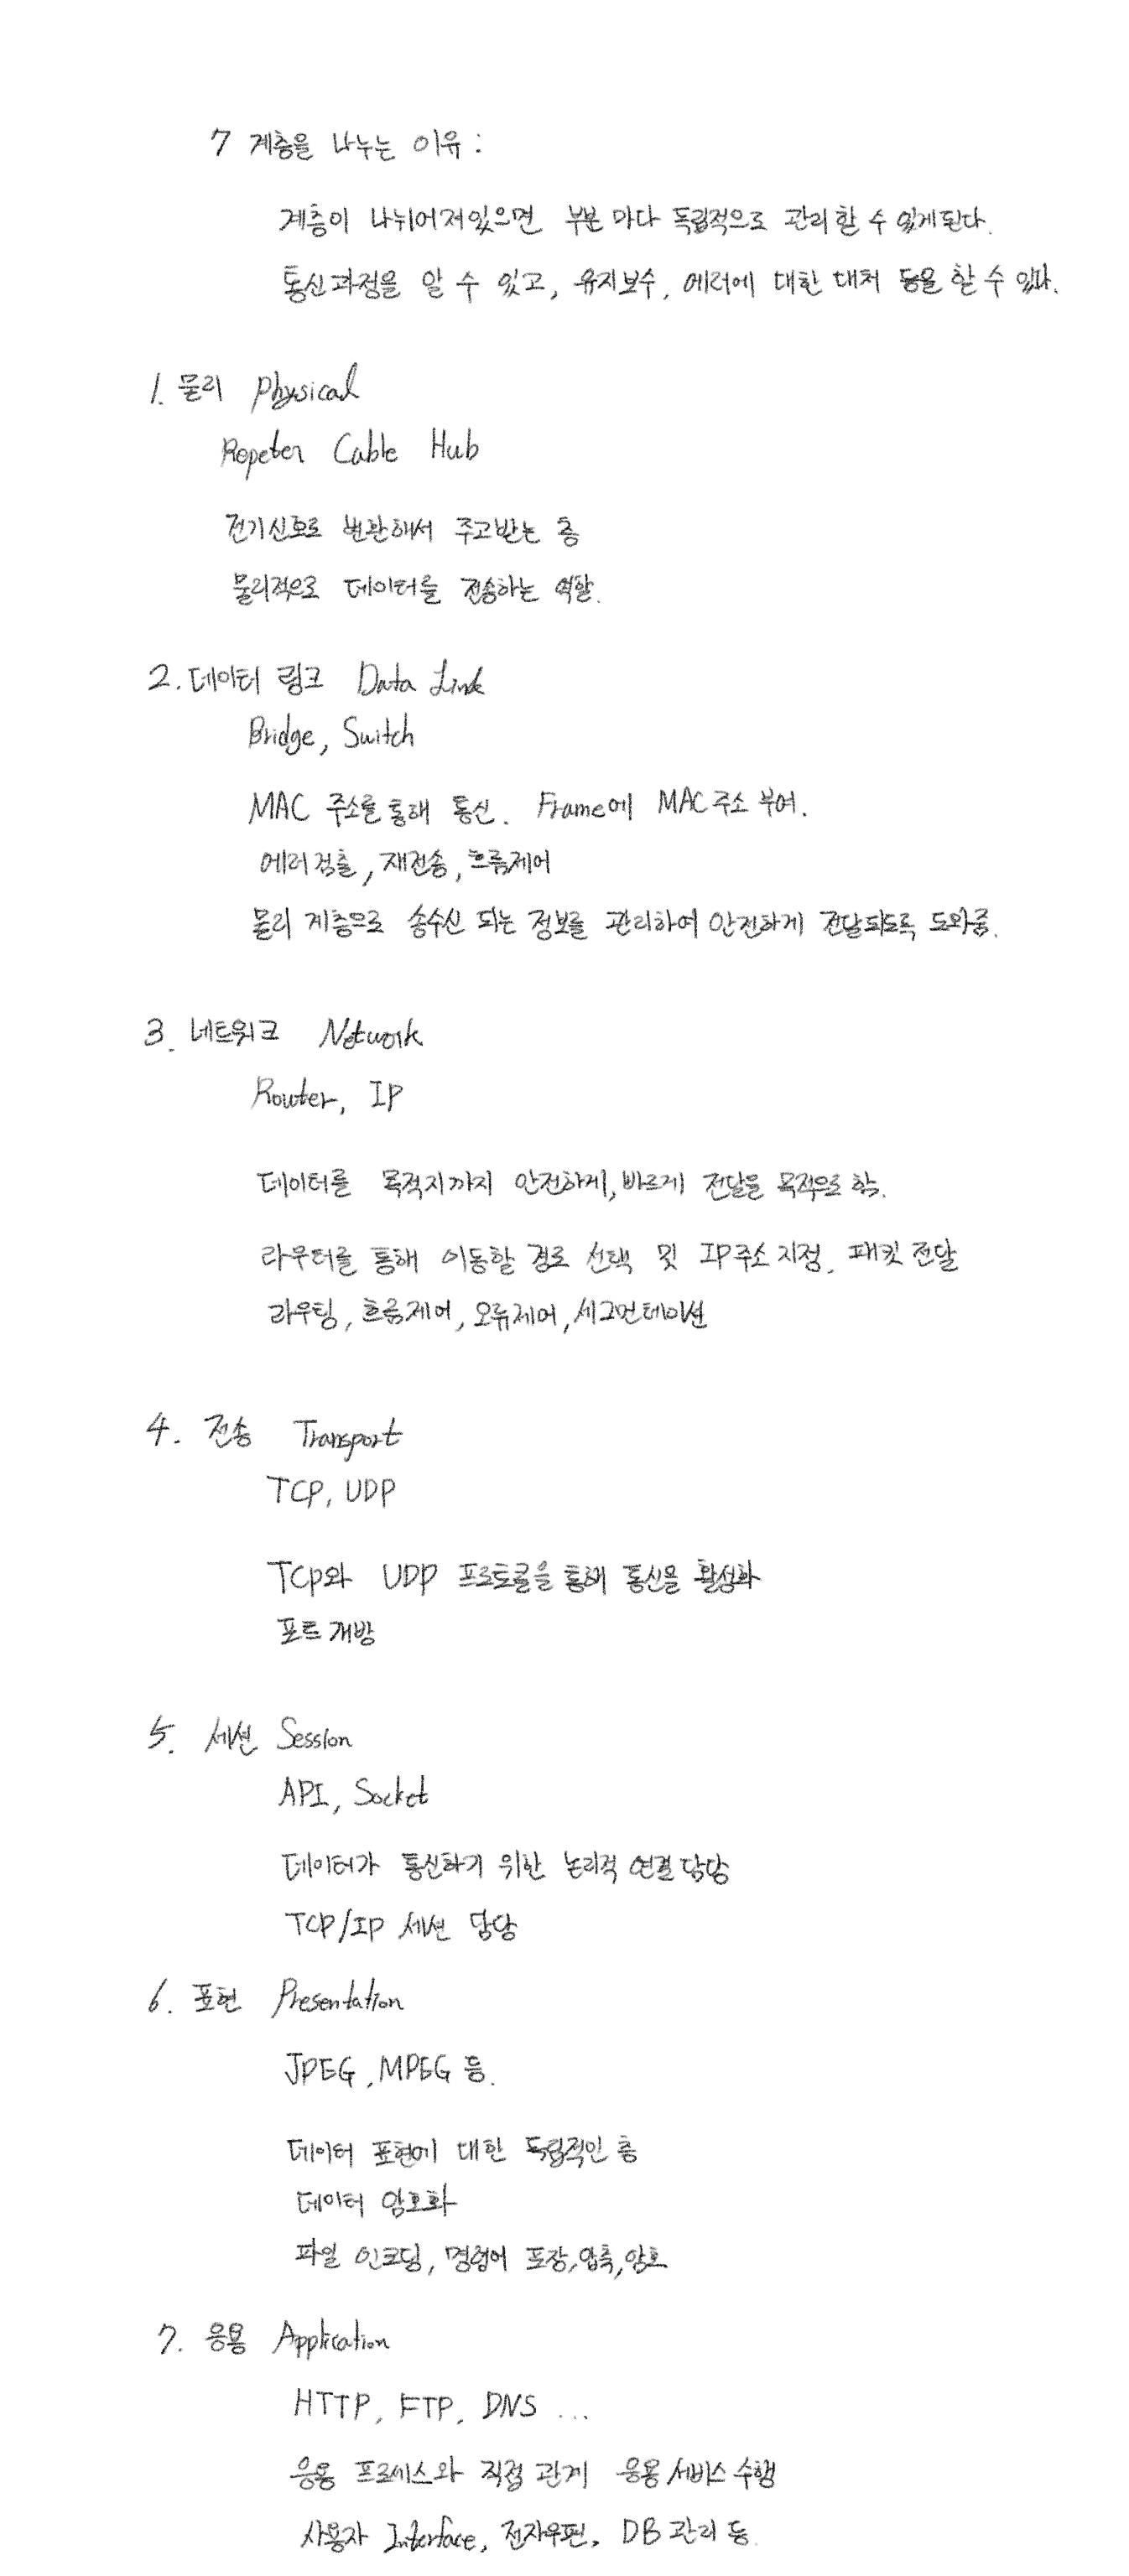 7 계층을 나누는 이유 :
계층이 나뉘어져있으면 부분마다 독립적으로 관리할 수 있게된다.
통신과정을 알 수 있고, 유지보수, 에러에 대한 대처 등을 할 수 있다.
1. 물리 Physical
Repeter Cable Hub
전기신호로 변환해서 주고받는 층
물리적으로 데이터를 전송하는 역할.
2. 데이터 링크 Data Link
Bridge, Switch
MAC 주소를 통해 통신. Frame에 MAC주소 부여.
에러검출, 재전송, 흐름제어
물리 계층으로 송수신 되는 정보를 관리하여 안전하게 전달되도록 도와줌.
3. 네트워크 Network
Router, IP
데이터를 목적지까지 안전하게, 빠르게 전달을 목적으로 함.
라우터를 통해 이동할 경로 선택 및 IP주소 지정. 패킷 전달
라우팅, 흐름제어, 오류제어, 세그먼테이션
4. 전송 Transport
TCP, UDP
TCP와 UDP 프로토콜을 통해 통신을 활성화
포트 개방
5. 세션 Session
API, Socket
데이터가 통신하기 위한 논리적 연결 담당
TCP/IP 세션 담당
6. 표현 Presentation
JPEG, MPEG 등.
데이터 표현에 대한 독립적인 층
데이터 암호화
파일 인코딩, 명령어 포장, 압축, 암호
7. 응용 Application
HTTP, FTP, DNS ...
응용 프로세스와 직접 관계 응용 서비스 수행
사용자 Interface, 전자우편, DB 관리 등.